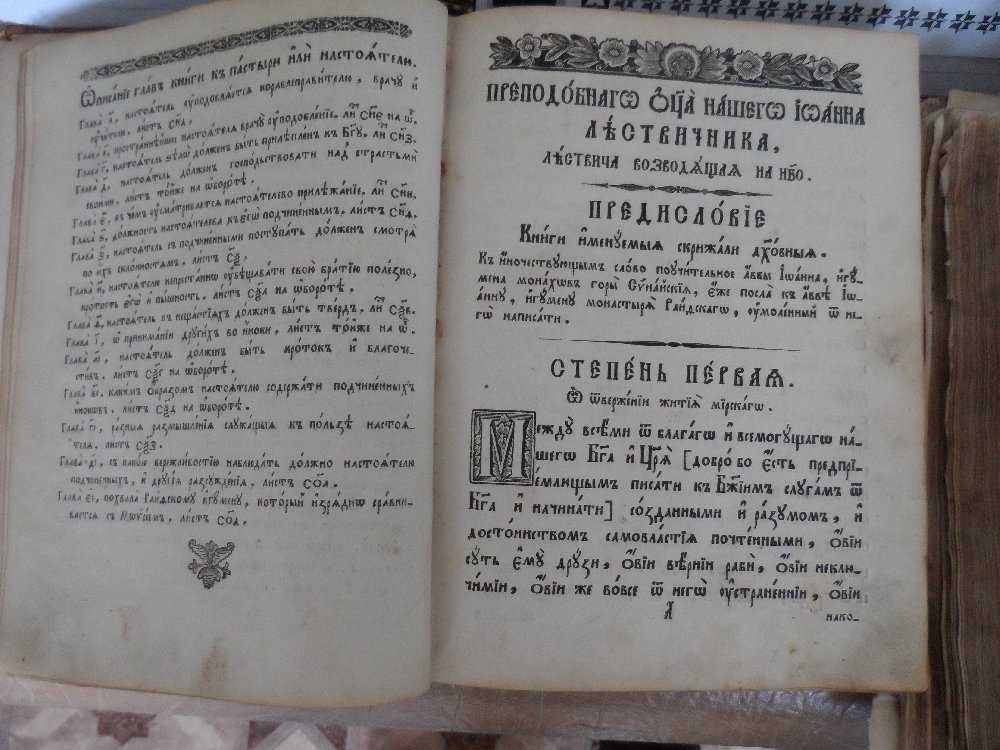 Ѻписанїе главъ книги къ пастырю или настоѧтелю.
Глава а҃, настоѧтель оуподоблѧетсѧ кораблеправителю, врачу и
оучителю, листъ
Глава в҃, пространнѣйшее настоѧтелѧ врачу оуподобленїе,
Глава г҃, настоѧтель долженъ быть прилѣпленъ къ Бг҃у,
Глава д҃, настоѧтель долженъ господьствовати надъ страстьми
своими, листъ тойже на ѡборотѣ.
Глава є҃, въ чемъ оусматриваетсѧ настоѧтелево прилѣжанїе,
Глава ѕ҃, должность настоѧтелева къ єгѡ подчиненнымъ, листъ
Глава з҃, настоѧтель съ подчиненными поступать долженъ смотрѧ
по ихъ склонностѧмъ, листъ
Глава и҃, настоѧтелю непрестаннѡ оувѣщавати свою братїю полезно,
кротость єгѡ и пышность. листъ на ѡборотѣ.
Глава ѳ҃, настоѧтель къ нещастїѧхъ долженъ быть твердъ,
Глава і҃, ѡ приниманїи другихъ во иноки, листъ тойже на ѡ҃.
Глава аі҃, настоѧтель долженъ быть кротокъ и благоче-
стивъ. листъ на ѡборотѣ.
Глава ві҃, какимъ ѻбразомъ настоѧтелю содержати подчиненныхъ
инокѡвъ. листъ на ѡборотѣ.
Глава гі҃, разныѧ размышленїѧ служащыѧ къ пользѣ настоѧ-
телѧ. листъ
Глава ді҃, съ какою бережливостїю наблюдать должно настоѧтелю
подчиненныхъ, и другїѧ разсужденїѧ, листъ со҃а.
Глава єі҃, похвала Раиѳскому игумену, который изрѧднѡ сравни-
ваетсѧ съ Мѡѵсеемъ, листъ со҃а.
ПРЕПОДО́БНАГѠ Ѻ҆ЦА̀ НА́ШЕГѠ ІѠА́ННА
ЛѢ́СТВИЧНИКА,
ЛѢ́СТВИЧА ВОЗВОДѦ́ЩАѦ НА НБ҃О.
ПРЕДИСЛО́ВЇЕ
Кни́ги и҆менꙋ́емыѧ скрижа́ли дх҃о́вныѧ.
Къ и҆ночествꙋ́ющымъ сло́во поꙋчи́тельное а҆́ввы І҆ѡа́нна, и҆гꙋ́-
мена мона́хѡвъ горы̀ Сѵна́йскїѧ, є҆́же посла̀ къ а҆́ввѣ І҆ѡ-
а́ннꙋ, и҆гꙋ́менꙋ монастырѧ̀ Раиѳскагѡ, оу҆моле́нный ѿ не-
гѡ̀ написа́ти.
СТЕПЕ́НЬ ПЕ́РВАѦ.
Ѡ҆ ѿверже́нїи житїѧ̀ мїрска́гѡ.
Междꙋ̀ всѣ́ми ѿ благагѡ и҆ всемогꙋ́щагѡ на́-
шегѡ Бг҃а и҆ Цр҃ѧ̀ [добро́ бо є҆́сть предпрї-
е́млющымъ писа́ти къ Бж҃їимъ слꙋга́мъ ѿ
Бг҃а и҆ начина́ти] со́зданными и҆ ра́зꙋмомъ, и҆
досто́инствомъ самовла́стїѧ почте́нными, ѻ҆́вїи
сꙋ́ть є҆мꙋ̀ дрꙋ́зи, ѻ҆́вїи вѣ́рнїи рабѝ, ѻ҆́вїи неклю-
чи́мїи, ѻ҆́вїи же во́все ѿ негѡ̀ оу҆странє́ннїи, ѻ҆́вїи
А
нако-